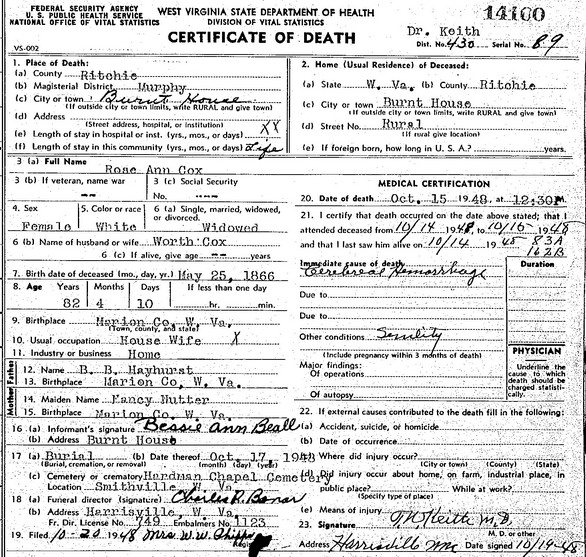 FEDERAL SECURITY AGENCY
U. S. PUBLIC HEALTH SERVICE
NATIONAL OFFICE OF VITAL STATISTICS
WEST VIRGINIA STATE DEPARTMENT OF HEALTH
DIVISION OF VITAL STATISTICS
CERTIFICATE OF DEATH
14100
Dr. Keith
Dist. No. 430 Serial No. 89
VS-002
1. Place of Death:
(a) County Ritchie
(b) Magisterial District Murphy
(c) City or town Burnt House
(If outside city or town limits, write RURAL and give town)
(d) Address
(Street address, hospital, or institution)
(e) Length of stay in hospital or inst. (yrs., mos., or days) XX
(f) Length of stay in this community (yrs., mos., or days) Life
2. Home (Usual Residence) of Deceased:
(a) State W. Va. (b) County Ritchie
(c) City or town Burnt House
(If outside city or town limits, write RURAL and give town)
(d) Street No. Rural
(If rural give location)
(e) If foreign born, how long in U. S. A.? years.
3 (a) Full Name
Rose Ann Cox
3 (b) If veteran, name war --
3 (c) Social Security
No. ----
4. Sex
Female
5. Color or race
White
6 (a) Single, married, widowed, or divorced.
Widowed
6 (b) Name of husband or wife Worth Cox
6 (c) If alive, give age -- years
7. Birth date of deceased (mo., day, yr.) May 25, 1866
8. Age Years Months Days If less than one day
82 4 10 hr. min.
9. Birthplace Marion Co, W. Va.
(Town, county, and state)
10. Usual occupation House Wife X
11. Industry or business Home
Father
12. Name B. B. Hayhurst
13. Birthplace Marion Co, W. Va.
Mother
14. Maiden Name Nancy Nutter
15. Birthplace Marion Co, W. Va.
16 (a) Informant's signature Bessie Ann Beall
(b) Address Burnt House
17 (a) Burial (b) Date thereof Oct. 17, 1948
(Burial, cremation, or removal) (month) (day) (year)
(c) Cemetery or crematory Hardman Chapel Cemetery
Location Smithville, W. Va.
18 (a) Funeral director (signature) Charles R. Bonar
(b) Address Harrisville, W. Va.
Fr. Dir. License No. 749 Embalmers No. 1123
19. Filed 10-20 1948 Mrs. W. W.
MEDICAL CERTIFICATION
20. Date of death Oct. 15 1948, at 12:30PM.
21. I certify that death occurred on the date above stated; that I
attended deceased from 10/14 1948, to 10/15 1948
and that I last saw him alive on 10/14 1948 83A
162B
Immediate cause of death Duration
Cerebral Hemorrhage
Due to
Due to
Other conditions Senility
(Include pregnancy within 3 months of death)
Major findings:
Of operations
Of autopsy
PHYSICIAN
Underline the cause to which death should be charged statistically.
22. If external causes contributed to the death fill in the following:
(a) Accident, suicide, or homicide
(b) Date of occurrence
(c) Where did injury occur?
(City or town) (County) (State)
(d) Did injury occur about home, on farm, industrial place, in
public place? While at work?
(Specify type of place)
(e) Means of injury
23. Signature Keith M.D.
M. D. or other
Address Harrisville Date signed 10/19-48